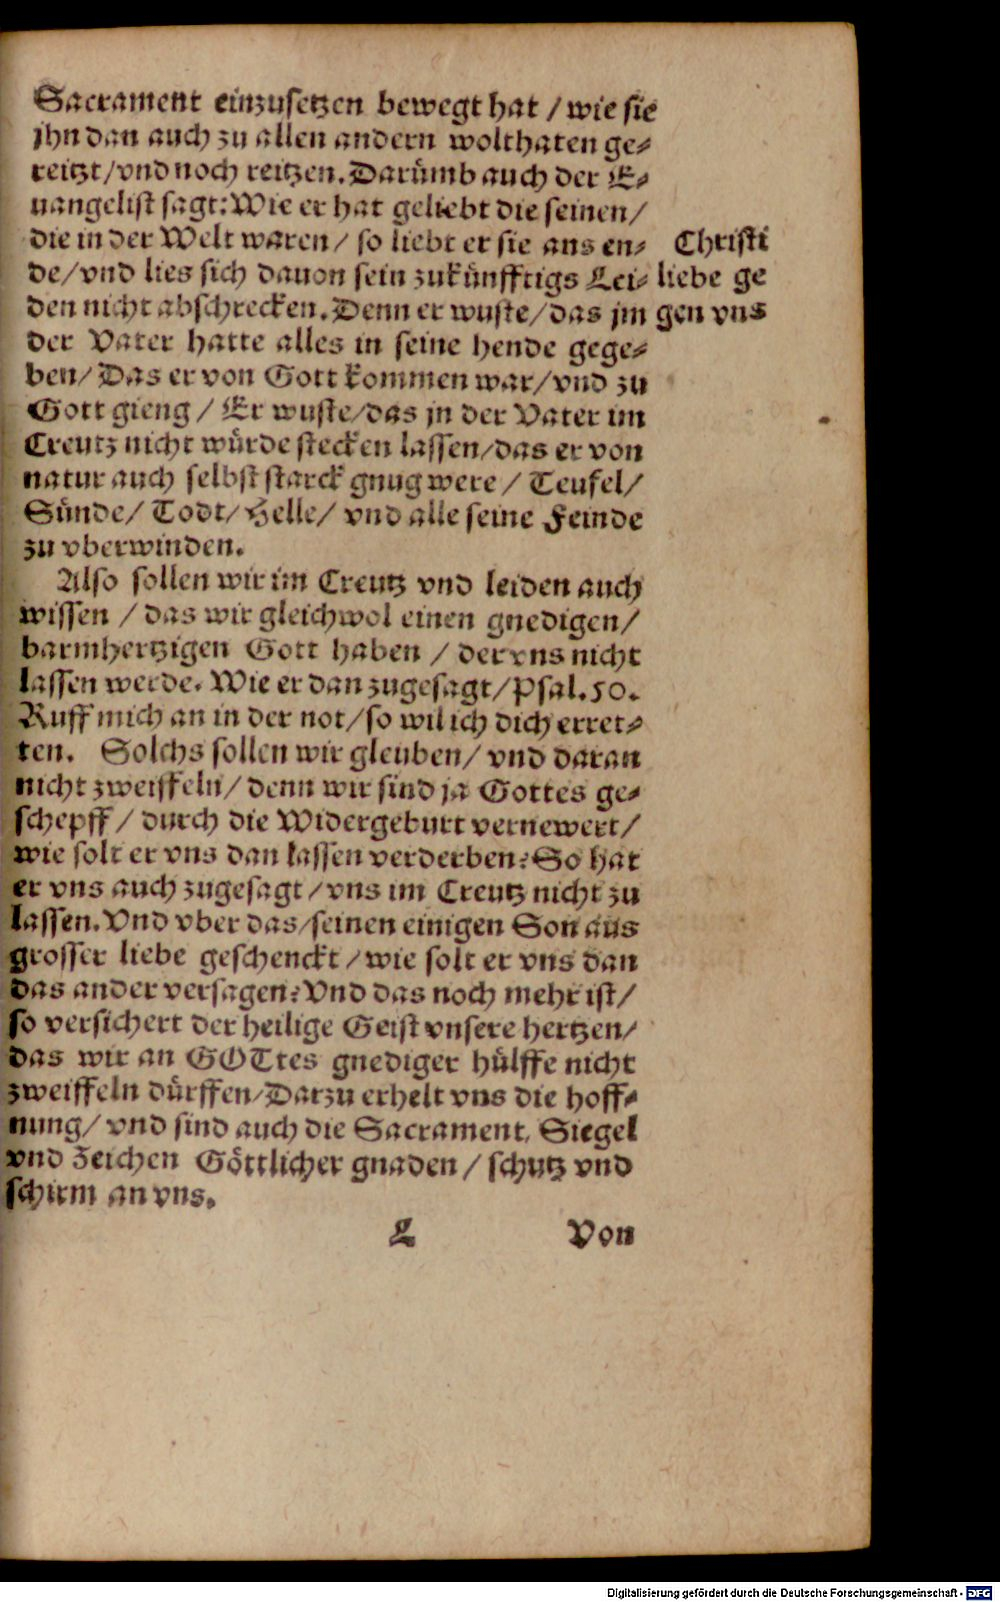 Sacrament einzusetzen bewegt hat / wie sie
jhn dan auch zu allen andern wolthaten ge⸗
reitzt / vnd noch reitzen. Darümb auch der E⸗
uangelist sagt: Wie er hat geliebt die seinen /
die in der Welt waren / so liebt er sie ans en⸗
de / vnd lies sich dauon sein zukünfftigs Lei⸗
den nicht abschrecken. Denn er wuste / das jm
der Vater hatte alles in seine hende gege⸗
ben / Das er von Gott kommen war / vnd zu
Gott gieng / Er wuste / das jn der Vater im
Creutz nicht würde stecken lassen / das er von
natur auch selbst starck gnug were / Teufel /
Sünde / Todt / Helle / vnd alle seine Feinde
zu vberwinden.
Christi
liebe ge
gen vns
Also sollen wir im Creutz vnd leiden auch
wissen / das wir gleichwol einen gnedigen /
barmhertzigen Gott haben / der vns nicht
lassen werde. Wie er dan zugesagt / Psal. 50.
Ruff mich an in der not / so wil ich dich erret⸗
ten. Solchs sollen wir gleuben / vnd daran
nicht zweiffeln / denn wir sind ja Gottes ge⸗
schepff / durch die Widergeburt vernewert /
wie solt er vns dan lassen verderben? So hat
er vns auch zugesagt / vns im Creutz nicht zu
lassen. Vnd vber das / seinen einigen Son aus
grosser liebe geschenckt / wie solt er vns dan
das ander versagen? Vnd das noch mehr ist /
so versichert der heilige Geist vnsere hertzen /
das wir an GOTtes gnediger hülffe nicht
zweiffeln dürffen / Darzu erhelt vns die hoff⸗
nung / vnd sind auch die Sacrament, Siegel
vnd Zeichen Göttlicher gnaden / schutz vnd
schirm an vns.
L Von
Digitalisierung gefördert durch die Deutsche Forschungsgemeinschaft - DFG